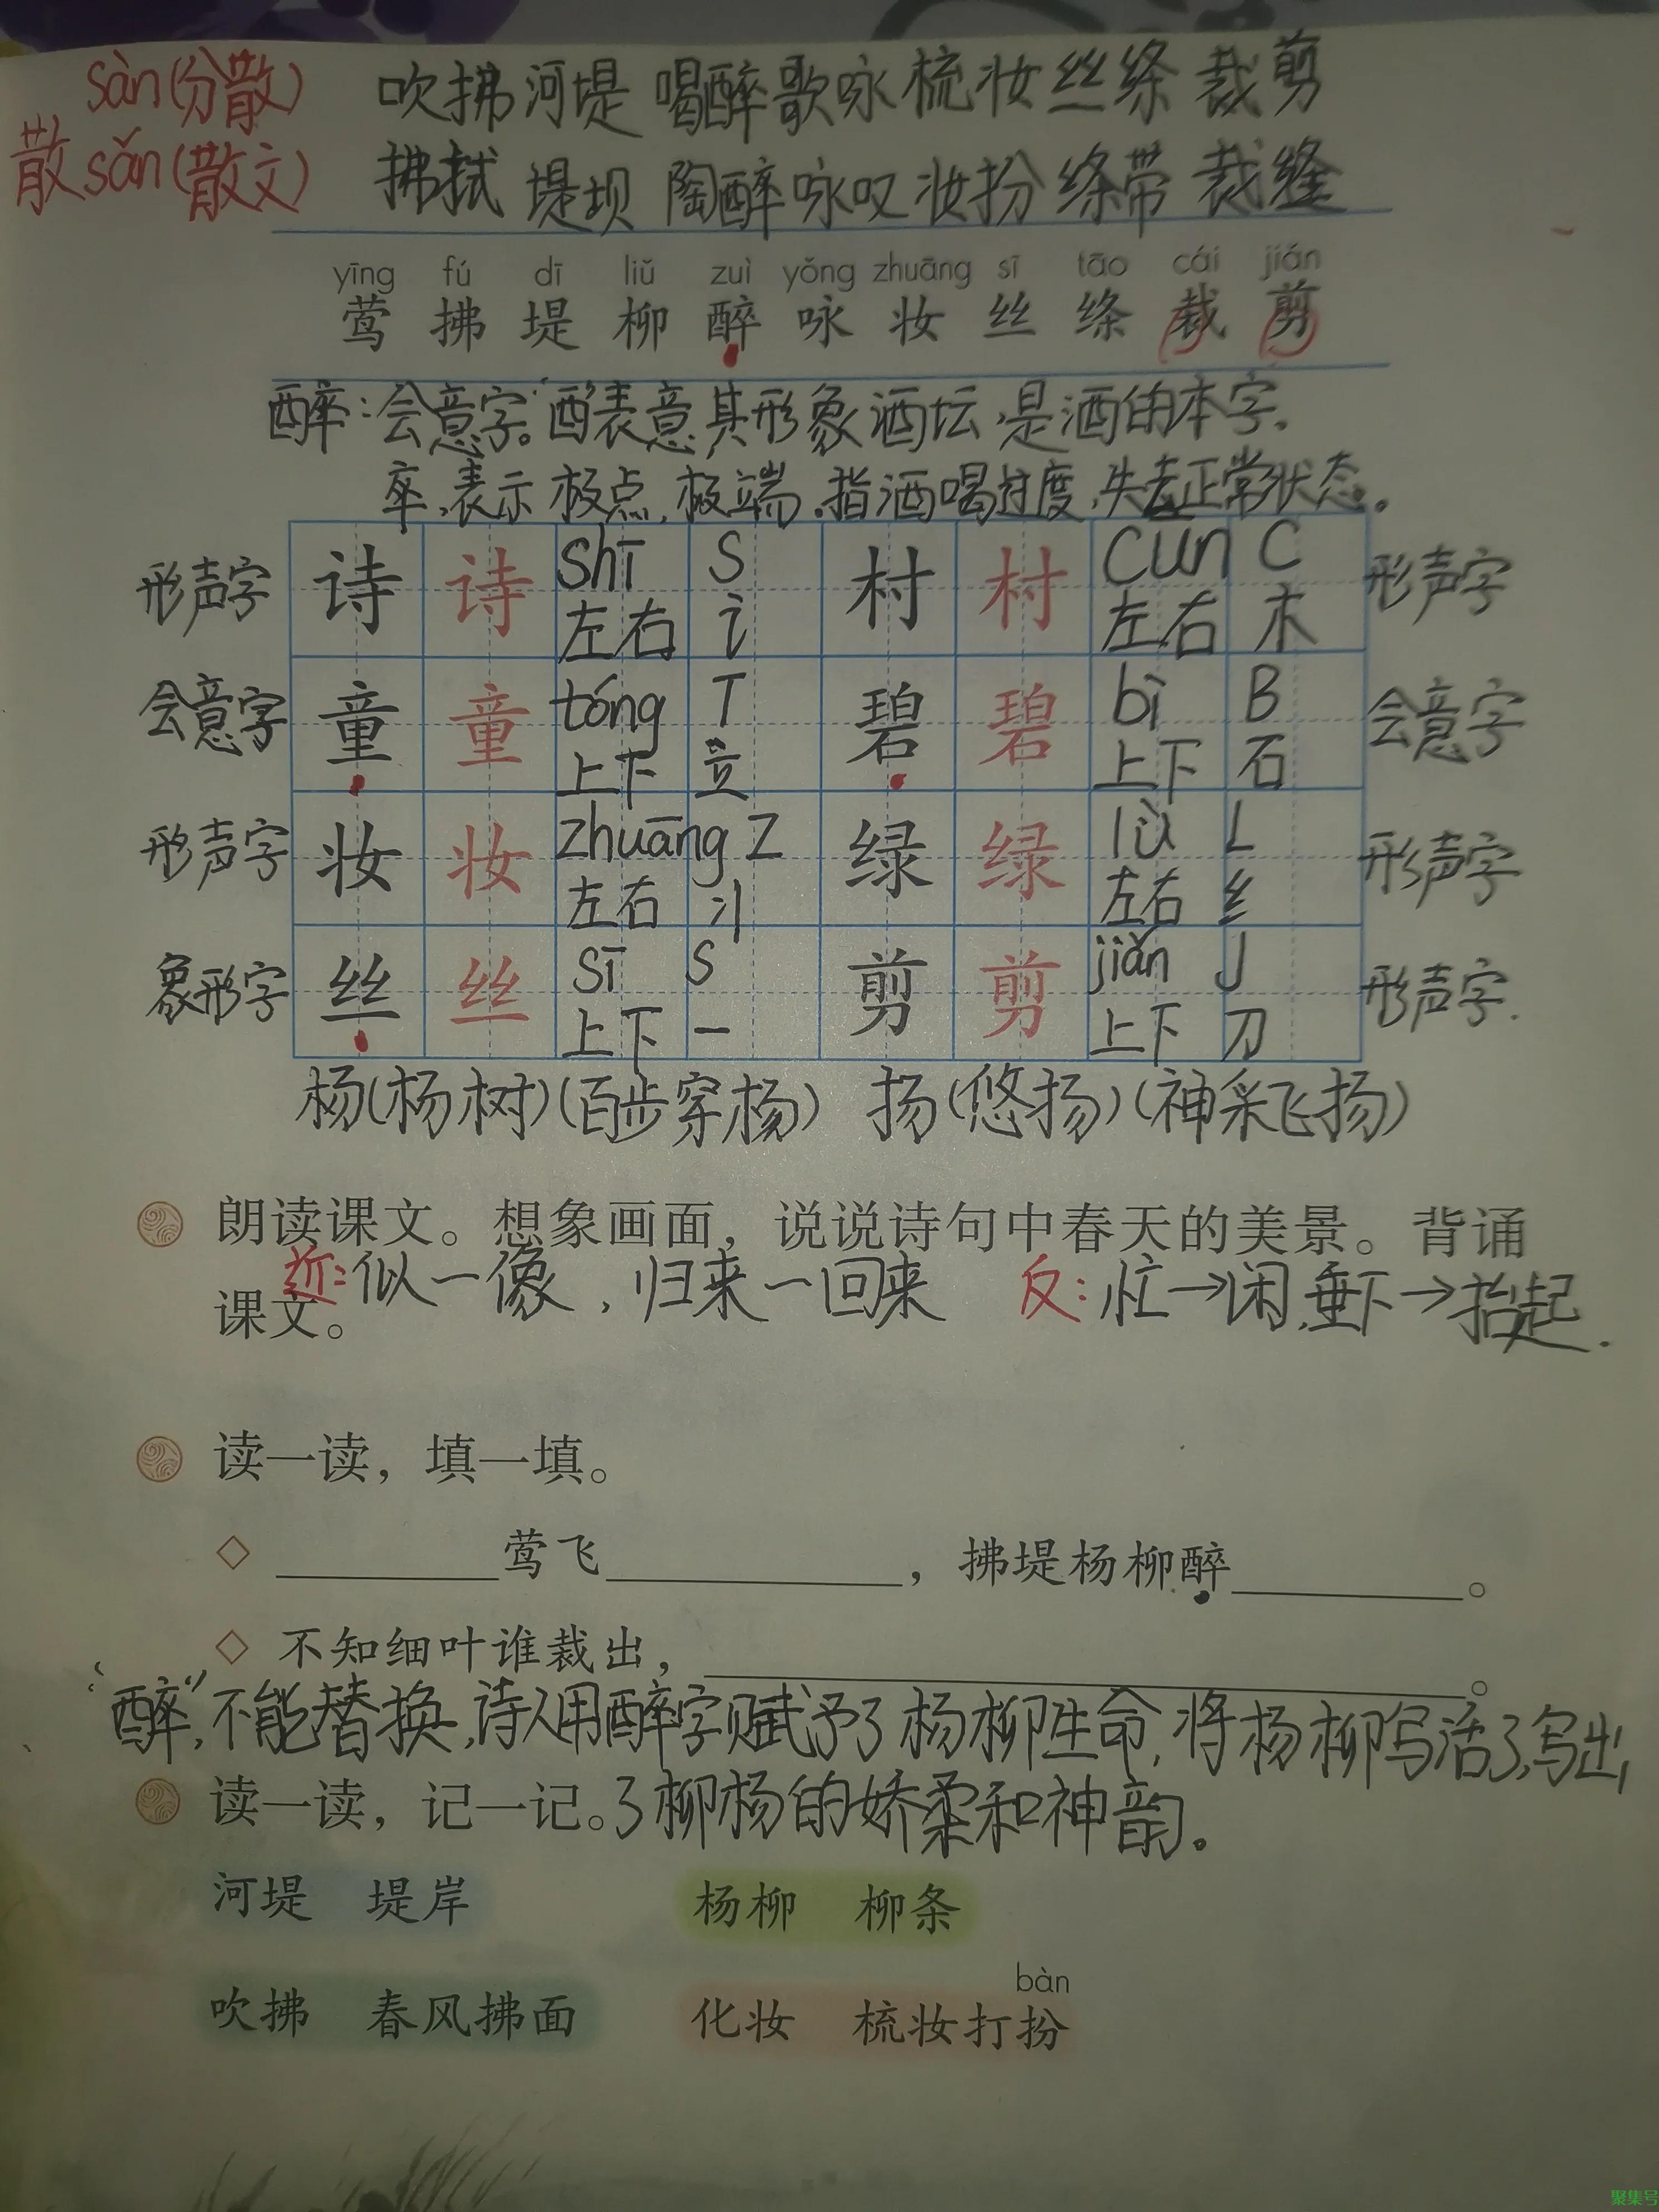 sàn(分散)
散 sǎn(散文)
吹拂 河堤 喝醉 歌咏 梳妆 丝绦 裁剪
拂拭 堤坝 陶醉 咏叹 妆扮 绦带 裁缝
yīng fú dī liǔ zuì yǒng zhuāng sī tāo cái jiǎn
莺 拂 堤 柳 醉 咏 妆 丝 绦 裁 剪
醉:会意字。"酉"表意,其形象酒坛,是酒的本字.
卒,表示极点,极端.指酒喝过度,失去正常状态.
形声字 诗 诗 shī S 村 村 cun C 形声字
左右 讠 左右 木
会意字 童 童 tóng T 碧 碧 bì B 会意字
上下 立 上下 石
形声字 妆 妆 zhuāng Z 绿 绿 lǜ L 形声字
左右 丬 左右 纟
象形字 丝 丝 sī S 剪 剪 jiǎn J 形声字.
上下 一 上下 刀
杨(杨树)(百步穿杨) 扬(悠扬)(神采飞扬)
朗读课文。想象画面,说说诗句中春天的美景。背诵
课文。
近:似一像,归来一回来 反:忙→闲,垂下→抬起.
读一读,填一填。
◇ ________莺飞________,拂堤杨柳醉________。
◇ 不知细叶谁裁出,________。
"醉",不能替换,诗人用醉字赋予了杨柳生命,将杨柳写活了,写出,
读一读,记一记。
了柳杨的娇柔和神韵。
河堤 堤岸 杨柳 柳条
bàn
吹拂 春风拂面 化妆 梳妆打扮
聚集号